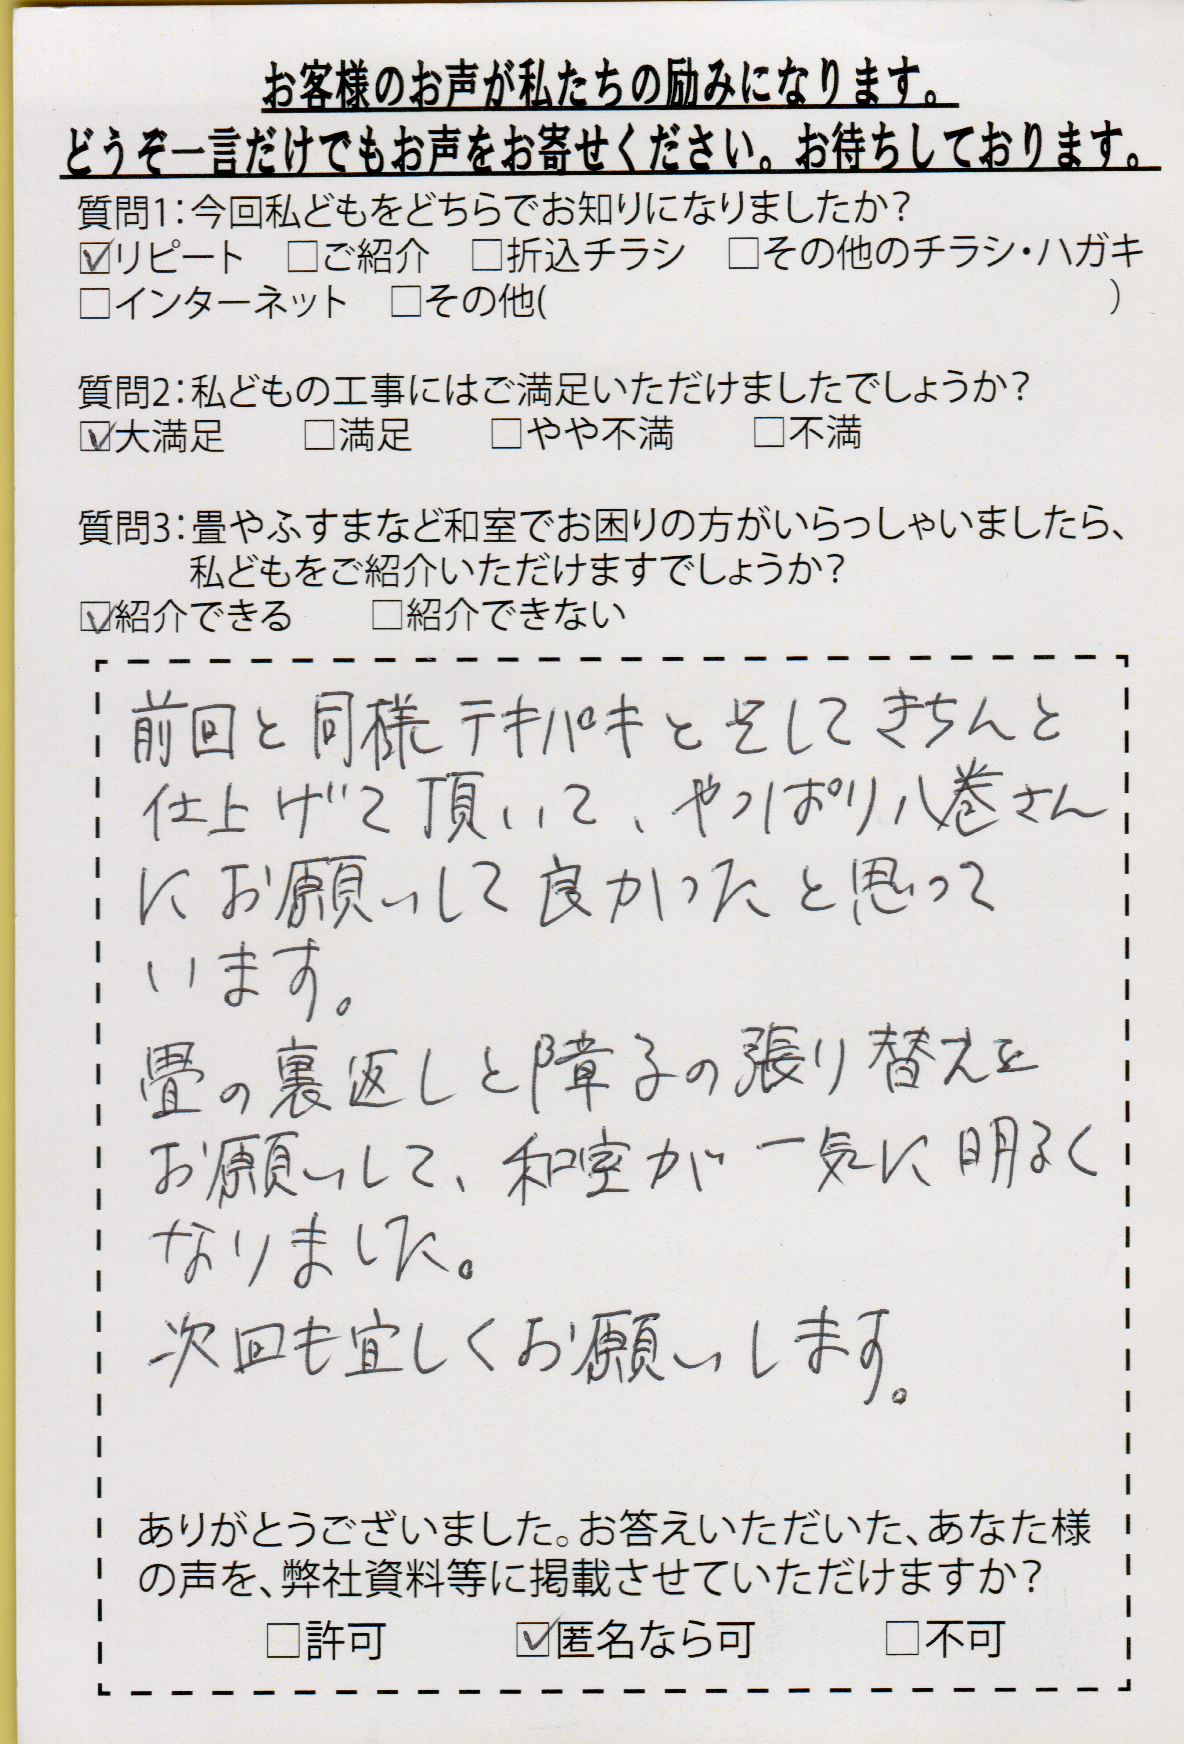 お客様のお声が私たちの励みになります。
どうぞ一言だけでもお声をお寄せください。お待ちしております。
質問1：今回私どもをどちらでお知りになりましたか？
☑リピート　□ご紹介　□折込チラシ　□その他のチラシ・ハガキ
□インターネット　□その他(　　　　　　　　　　)
質問2：私どもの工事にはご満足いただけましたでしょうか？
☑大満足　□満足　□やや不満　□不満
質問3：畳やふすまなど和室でお困りの方がいらっしゃいましたら、
私どもをご紹介いただけますでしょうか？
☑紹介できる　□紹介できない
前回と同様テキパキと そして きちんと
仕上げて頂いて、やっぱり八巻さん
にお願いして良かったと思って
います。
畳の裏返しと障子の張り替えを
お願いして、和室が一気に明るく
なりました。
次回も宜しくお願いします。
ありがとうございました。お答えいただいた、あなた様
の声を、弊社資料等に掲載させていただけますか？
□許可　☑匿名なら可　□不可